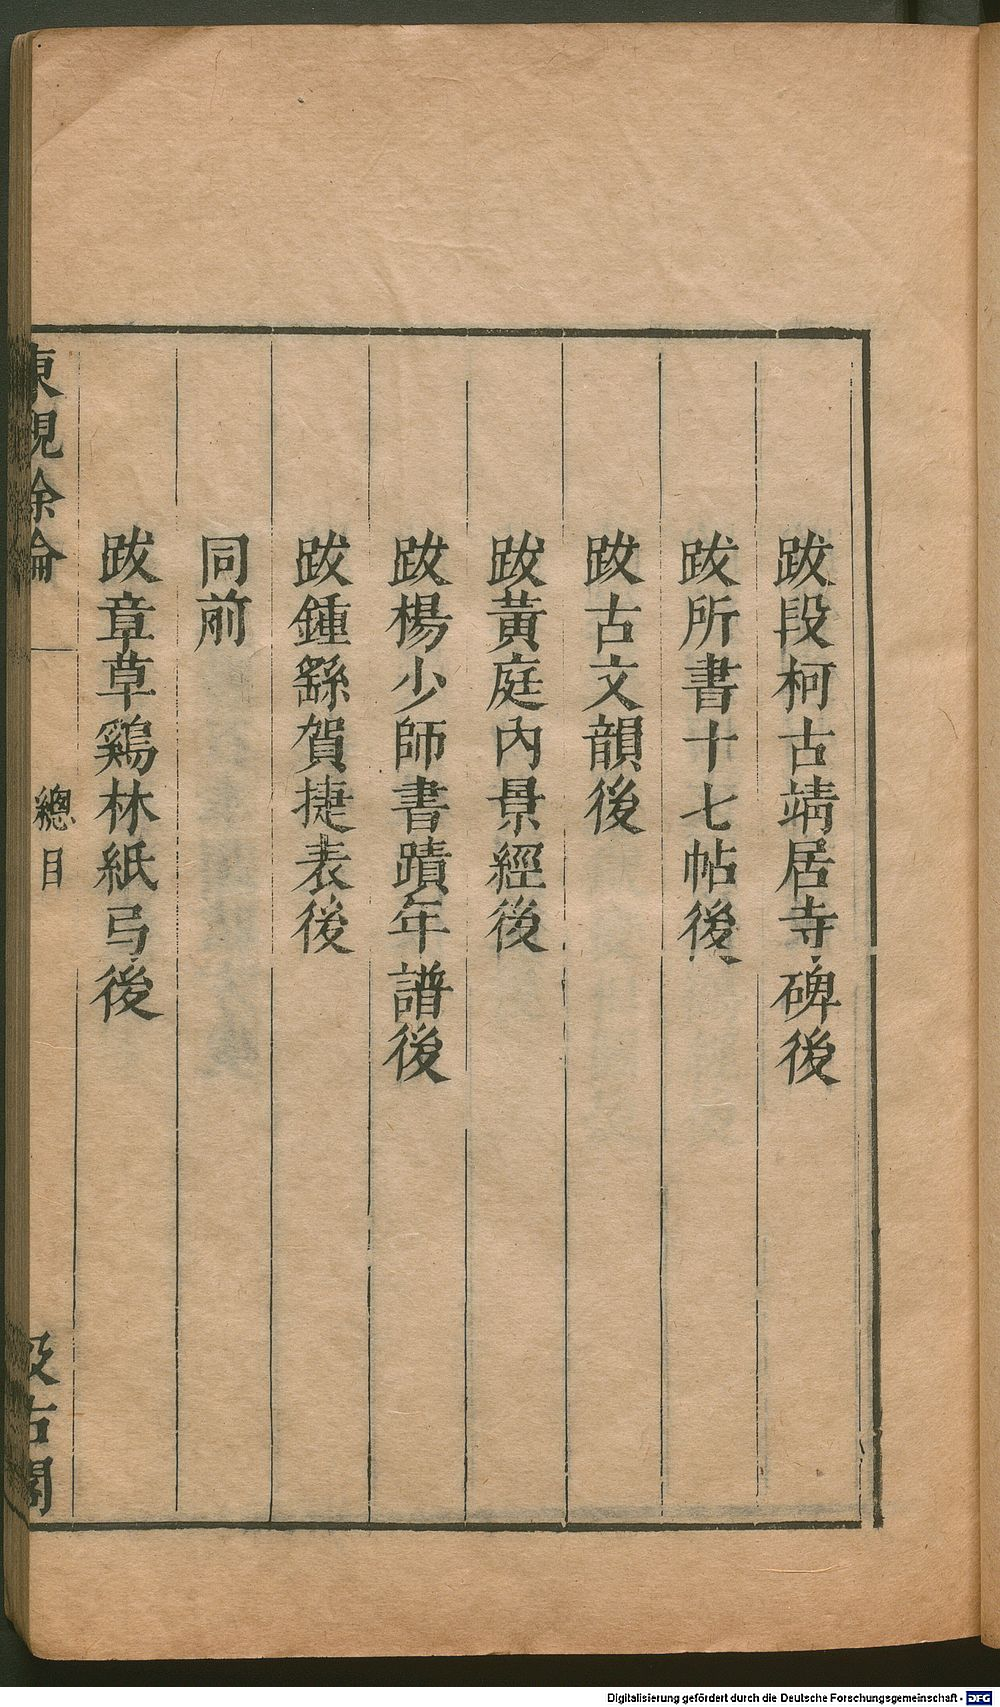 跋段柯古靖居寺碑後
跋所書十七帖後
跋古文韻後
跋黃庭內景經後
跋楊少師書蹟年譜後
跋鍾繇賀捷表後
同前
跋章草鷄林紙弓後
東觀餘論
總目
汲古閣
Digitalisierung gefördert durch die Deutsche Forschungsgemeinschaft - DFG